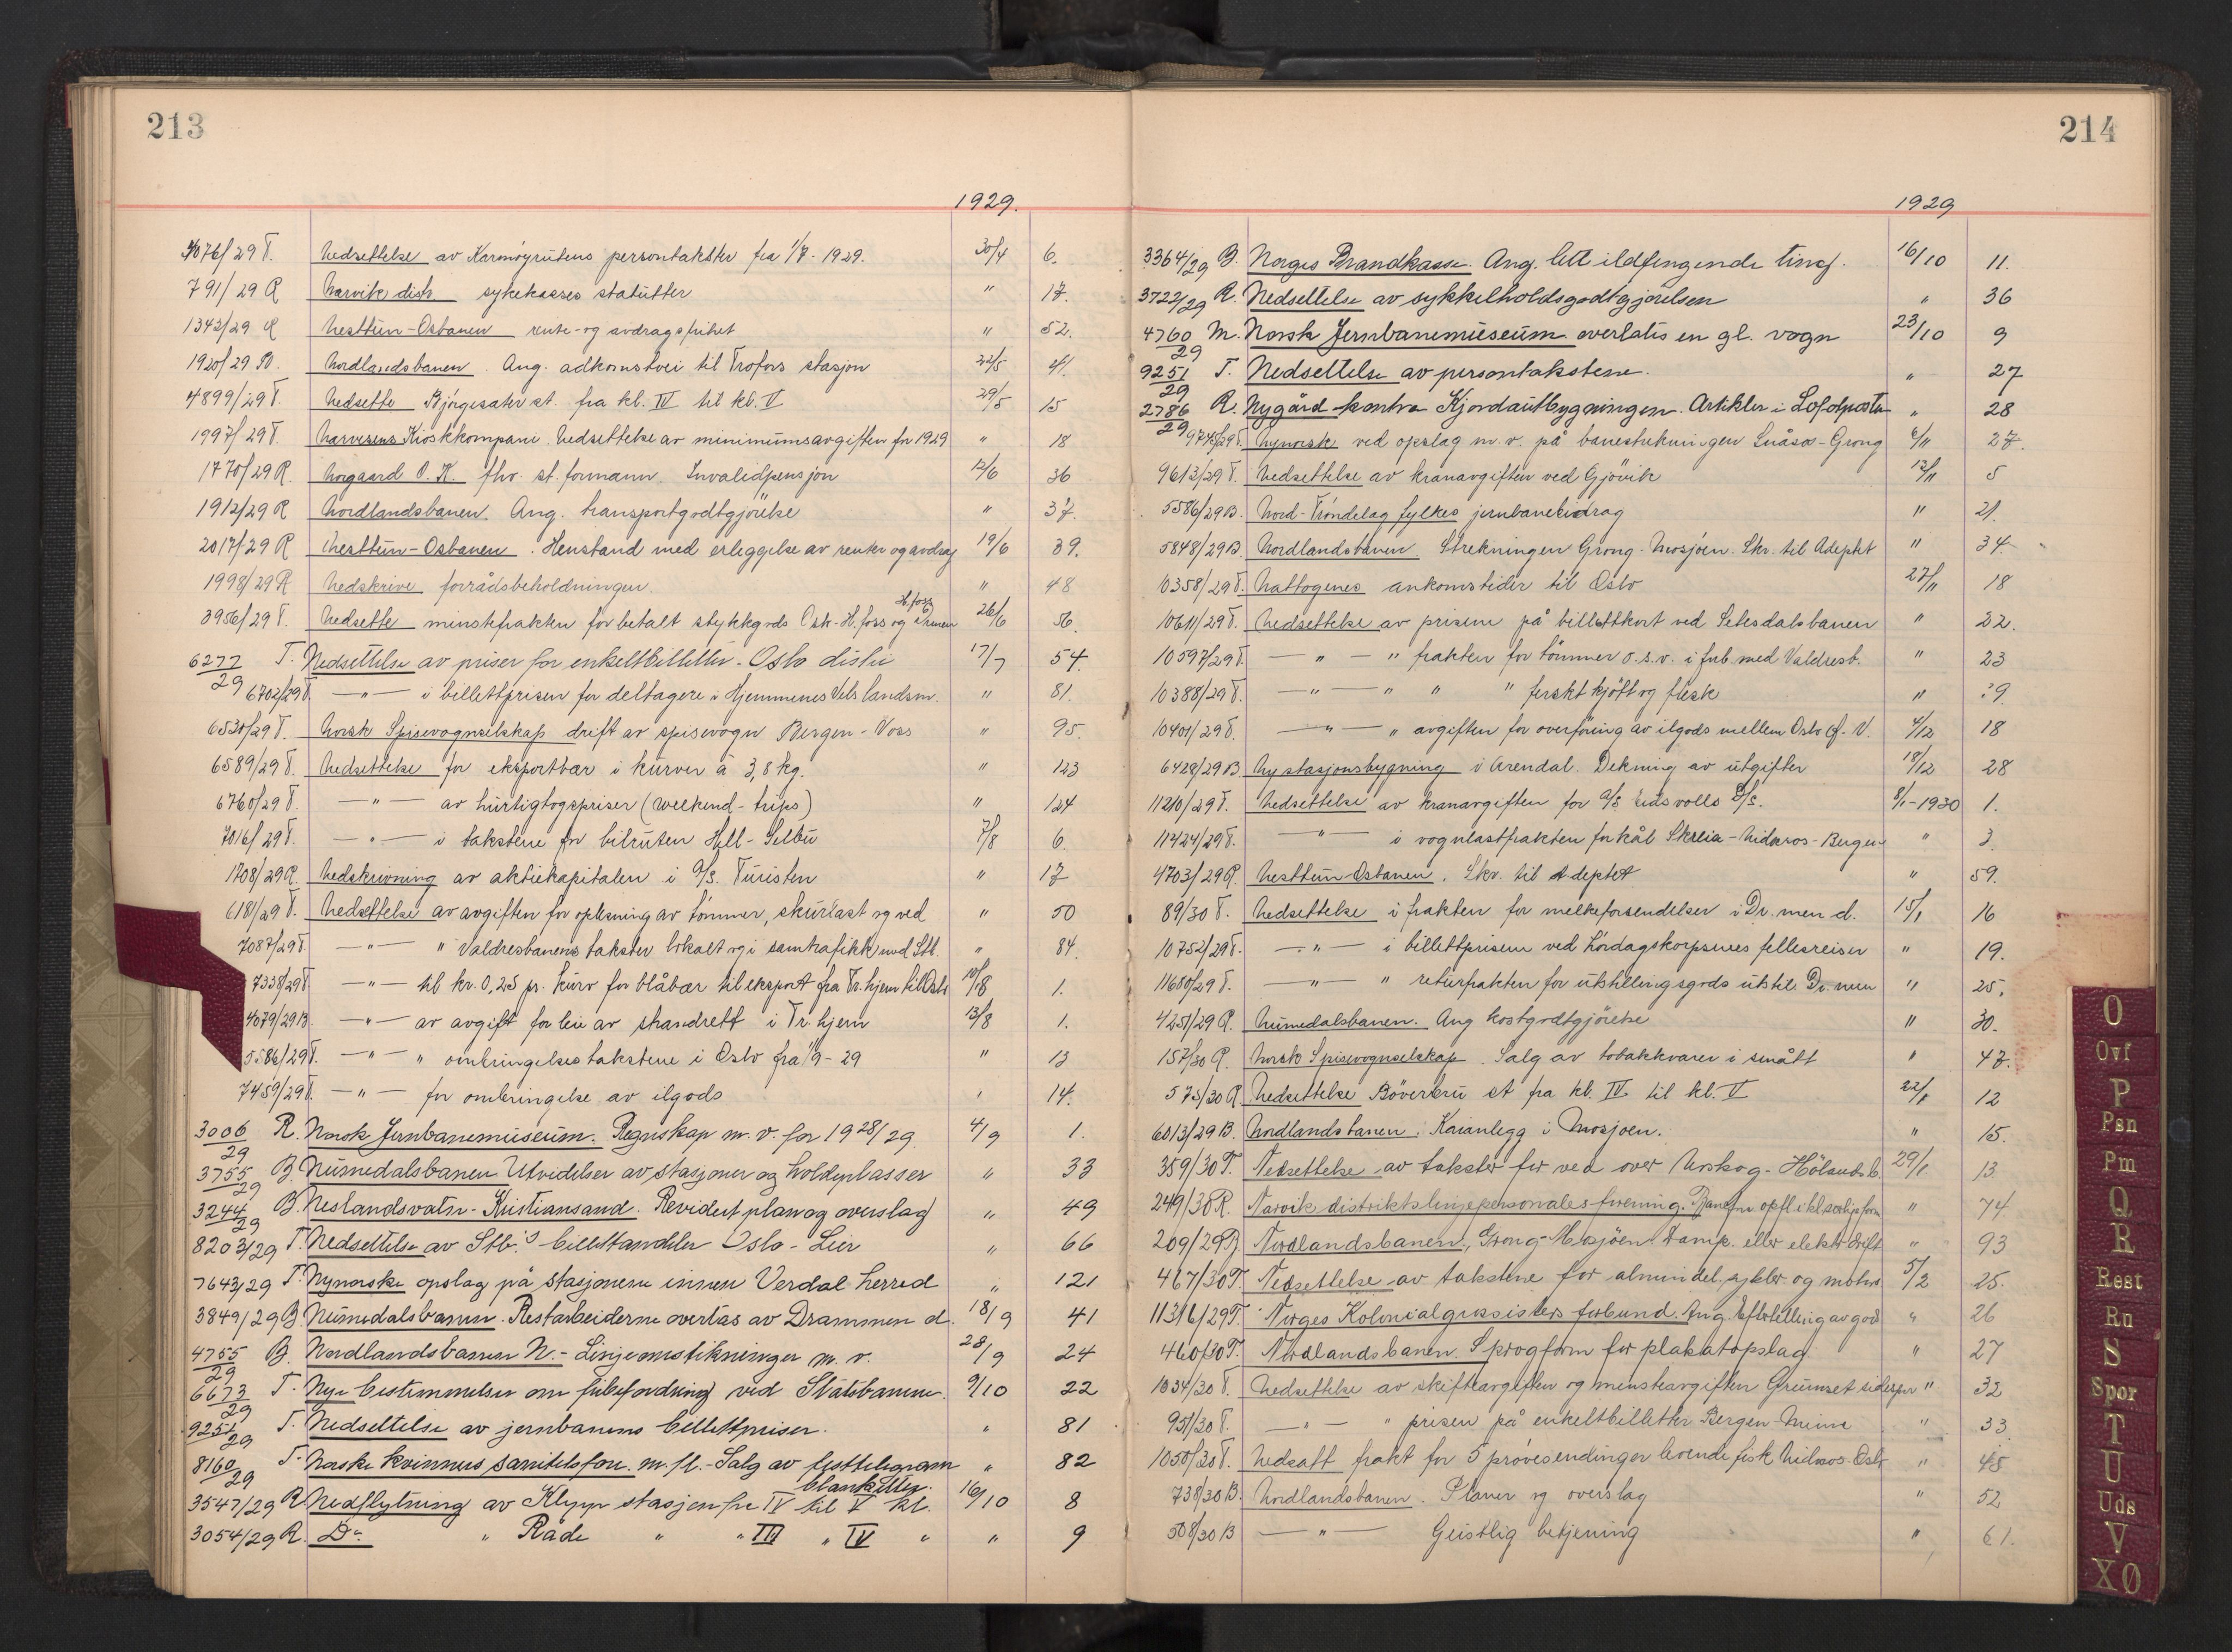 213
1929.
4076/29 T. Nedsettelse av Karmøyrutens persontakster fra 1/7 - 1929. 30/4 6.
791/29 R Narvik distr. sykekasses statutter " 17.
1342/29 R Nesttun-Osbanen rente- og avdragsfrihet " 52.
1925/29 B. Nordlandsbanen. Ang. adkomstvei til Trofors stasjon 22/5 41.
4899/29 T. Nedsette Bjørgesæter st. fra kl. IV til kl. V 29/5 15
1997/29 T. Narvesens Kioskkompani. Nedsettelse av minimumsavgiften for 1929 " 18
1770/29 R. Norgaard O. K. fhv. st. formann. Invalidpensjon 12/6 36
1912/29 R Nordlandsbanen. Ang. transportgodtgjörelse " 37.
2017/29 R Nesttun-Osbanen. Henstand med erleggelse av renter og avdrag 19/6 39.
1998/29 R Nedskrive forrådsbeholdningen. " 48
H.foss
3956/29 T. Nedsette minstefrakten for betalt stykkgods Oslo-H.foss og Drmen 26/6 56.
6277/29 T. Nedsettelse av priser for enkeltbilletter - Oslo distri 17/7 54.
6702/29 T. —"— i billettprisen for deltagere i Hjemmenes Vels landsm. " 81.
6530/29 T. Norsk Spisevognselskap drift av spisevogn Bergen - Voss " 95.
6589/29 T. Nedsettelse for eksportbær i kurver à 3,8 kg. " 123
6760/29 T. —"— av hurtigtogspriser (weekend-trips) " 124
7016/29 T. —"— i takstene for bilruten Hell - Selbu 7/8 6.
1708/29 R. Nedskrivning av aktiekapitalen i A/S. Turisten " 17
6181/29 T. Nedsettelse av avgiften for oplesning av tömmer, skurlast og ved " 50
7087/29 T. —"— " Valdresbanens takster lokalt og i samtrafikk med Stb. " 84.
7338/29 T. —"— til kr. 0,25 pr. kurv for blåbær til eksport fra Tr.hjem til Oslo 10/8 1.
4079/29 B. —"— av avgift for leie av strandrett i Tr.hjem 13/8 1.
5586/29 T. —"— " ombringelsestakstene i Oslo fra 1/9 - 29 " 13
7459/29 T. —"— for ombringelse av ilgods " 14.
3006/29 R. Norsk Jernbanemuseum. Regnskap m. v. for 1928/29 4/9 1.
3755/29 B. Numedalsbanen Utvidelser av stasjoner og holdeplasser " 33
3244/29 B. Neslandsvatn - Kristiansand. Revidert plan og overslag " 49
8203/29 T. Nedsettelse av Stb.s billettandeler Oslo - Lier " 66
7643/29 T. Nynorske opslag på stasjonene innen Verdal herred " 121
3849/29 B. Numedalsbanen. Restarbeiderne overtas av Drammen d. 18/9 41
4755/29 B. Nordlandsbanen N. - Linjeomstikninger m. v. 28/9 24
6673/29 T. Nye bestemmelser om fribefordring ved Statsbanene. 9/10 22
9251/29 T. Nedsettelse av jernbanens billettpriser. " 81
8160/29 T. Norske kvinners sanitetsfore. m. fl. - Salg av festtelegram " 82
blanketter.
3547/29 R. Nedflytning av Klepp stasjon fra IV til V kl. 16/10 8
3054/29 R. Do " Råde " " III " IV " " 9
214
1929
3364/29 B. Norges Brandkasse. Ang. lett ildfengende ting. 16/10 11.
3722/29 R. Nedsettelse av sykkelholdsgodtgjörelsen " 36
4760/29 M. Norsk Jernbanemuseum overlates en gl. vogn 23/10 9
9251/29 T. Nedsettelse av persontakstene. " 27
2786/29 R. Nygård kontra Fjordautbygningen. Artikler i Lofotposten " 28
9743/29 T. Nynorsk ved opslag m. v. på banestrekningen Snåsa - Grong 6/11 27.
9613/29 T. Nedsettelse av kranavgiften ved Gjövik 12/11 5
5586/29 B. Nord-Tröndelag fylkes jernbanebidrag " 21.
5848/29 B. Nordlandsbanen. Strekningen Grong - Mosjöen. Skr. til A deptet " 34.
10358/29 T. Nattogenes ankomstider til Oslo 27/11 18
10611/29 T. Nedsettelse av prisene på billettkort ved Setesdalsbanen " 22.
10597/29 T. —"— " frakten for tömmer o.s.v. i forb. med Valdresb. " 23
10388/29 T. —"— " " " ferskt kjött og flesk " 29.
10401/29 T. —"— " avgiften for overföring av ilgods mellem Oslo Ö.-V. 4/12 18
6428/29 B Ny stasjonsbygning i Arendal. Dekning av utgifter 18/12 28
11210/29 T. Nedsettelse av kranavgiften for A/S Eidsvolls D/S. 8/1-1930 1.
11424/29 T. —"— i vognlastfrakten for kål Skreia - Nidaros - Bergen " 3.
4703/29 R. Nesttun-Osbanen. Skr. til A deptet " 59.
89/30 T. Nedsettelse i frakten for melkeforsendelser i Dr.men d. 15/1 16
10752/29 T. —"— i billettprisene ved Lördagskorpsenes fellesreiser " 19.
11680/29 T. —"— " returfrakten for utstillingsgods utstil. Dr.men " 25.
4251/29 R. Numedalsbanen. Ang kostgodtgjörelse " 30.
157/30 R. Norsk Spisevognselskap. Salg av tobakkvarer i smått " 47.
575/30 R. Nedsettelse Böverbru st fra kl. IV til kl. V 22/1 12
6013/29 B. Nordlandsbanen. Kaianlegg i Mosjøen. " 15.
359/30 T. Nedsettelse av takster for ved over Urskog-Hölandsb. 29/1 13
249/30 R. Narvik distrikts linjepersonales forening. " 74
209/29 B. Nordlandsbanen, Grong-Mosjöen Damp. eller elektr drift " 93
467/30 T. Nedsettelse av takstene for almindel. sykler og motor 5/2 25.
11316/29 T. Norges Kolonialgrossisters forbund. Ang. Eftertelling av gods " 26
460/30 T. Nordlandsbanen. Sprogform for plakatopslag " 27
1034/30 T. Nedsettelse av skifteavgiften og minsteavgiften Grumset sidespor " 32
951/30 T. —"— " prisen på enkeltbilletter Bergen - Mime " 33
1050/30 T. Nedsatt frakt for 5 prövesendinger levende fisk Nidaros-Oslo " 45
738/30 B. Nordlandsbanen. Planer og overslag " 52
508/30 B —"— Geistlig betjening " 61.
O
Ovf
P
Psn
Pm
Q
R
Rest
Ru
S
Spor
T
U
Uds
V
XØ